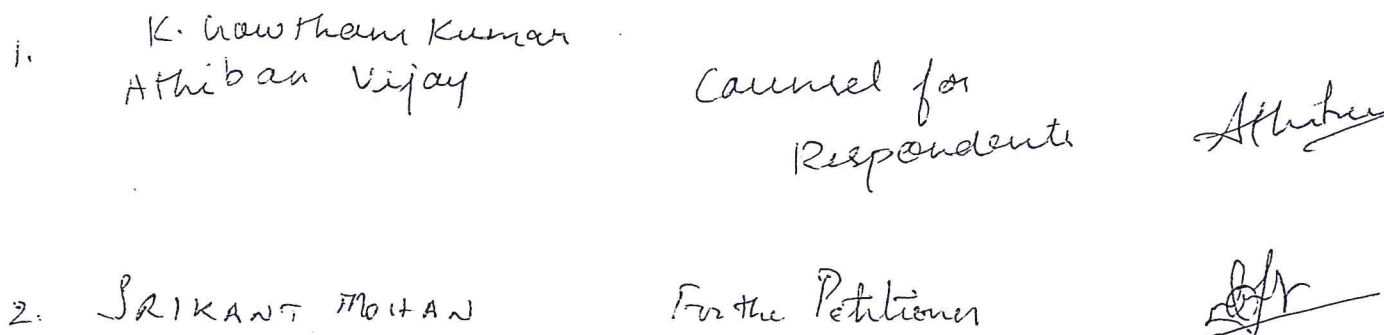 1. K. Gowtham Kumar
Athiban Vijay
Counsel for
Respondents
Athiban
2. SRIKANT MOHAN
For the Petitioner